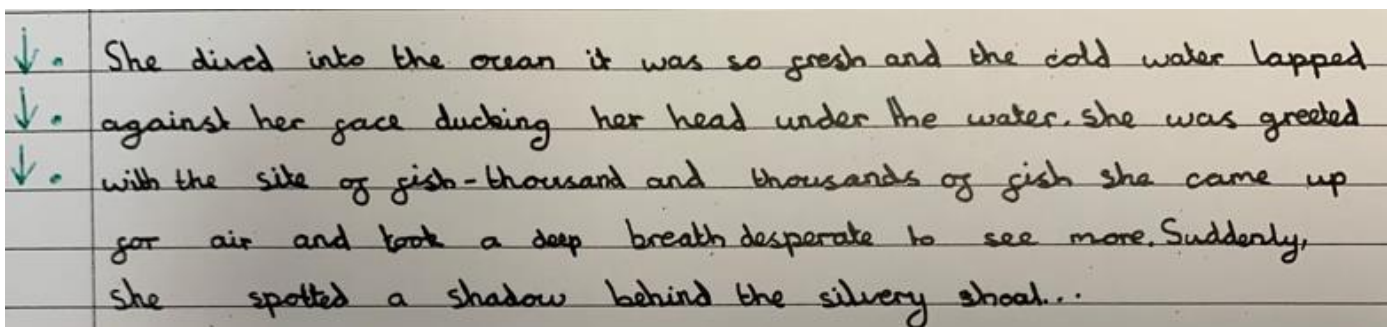 She dived into the ocean it was so fresh and the cold water lapped
against her face ducking her head under the water. she was greeted
with the site of fish-thousand and thousands of fish she came up
for air and took a deep breath desperate to see more. Suddenly,
she spotted a shadow behind the silvery shoal...